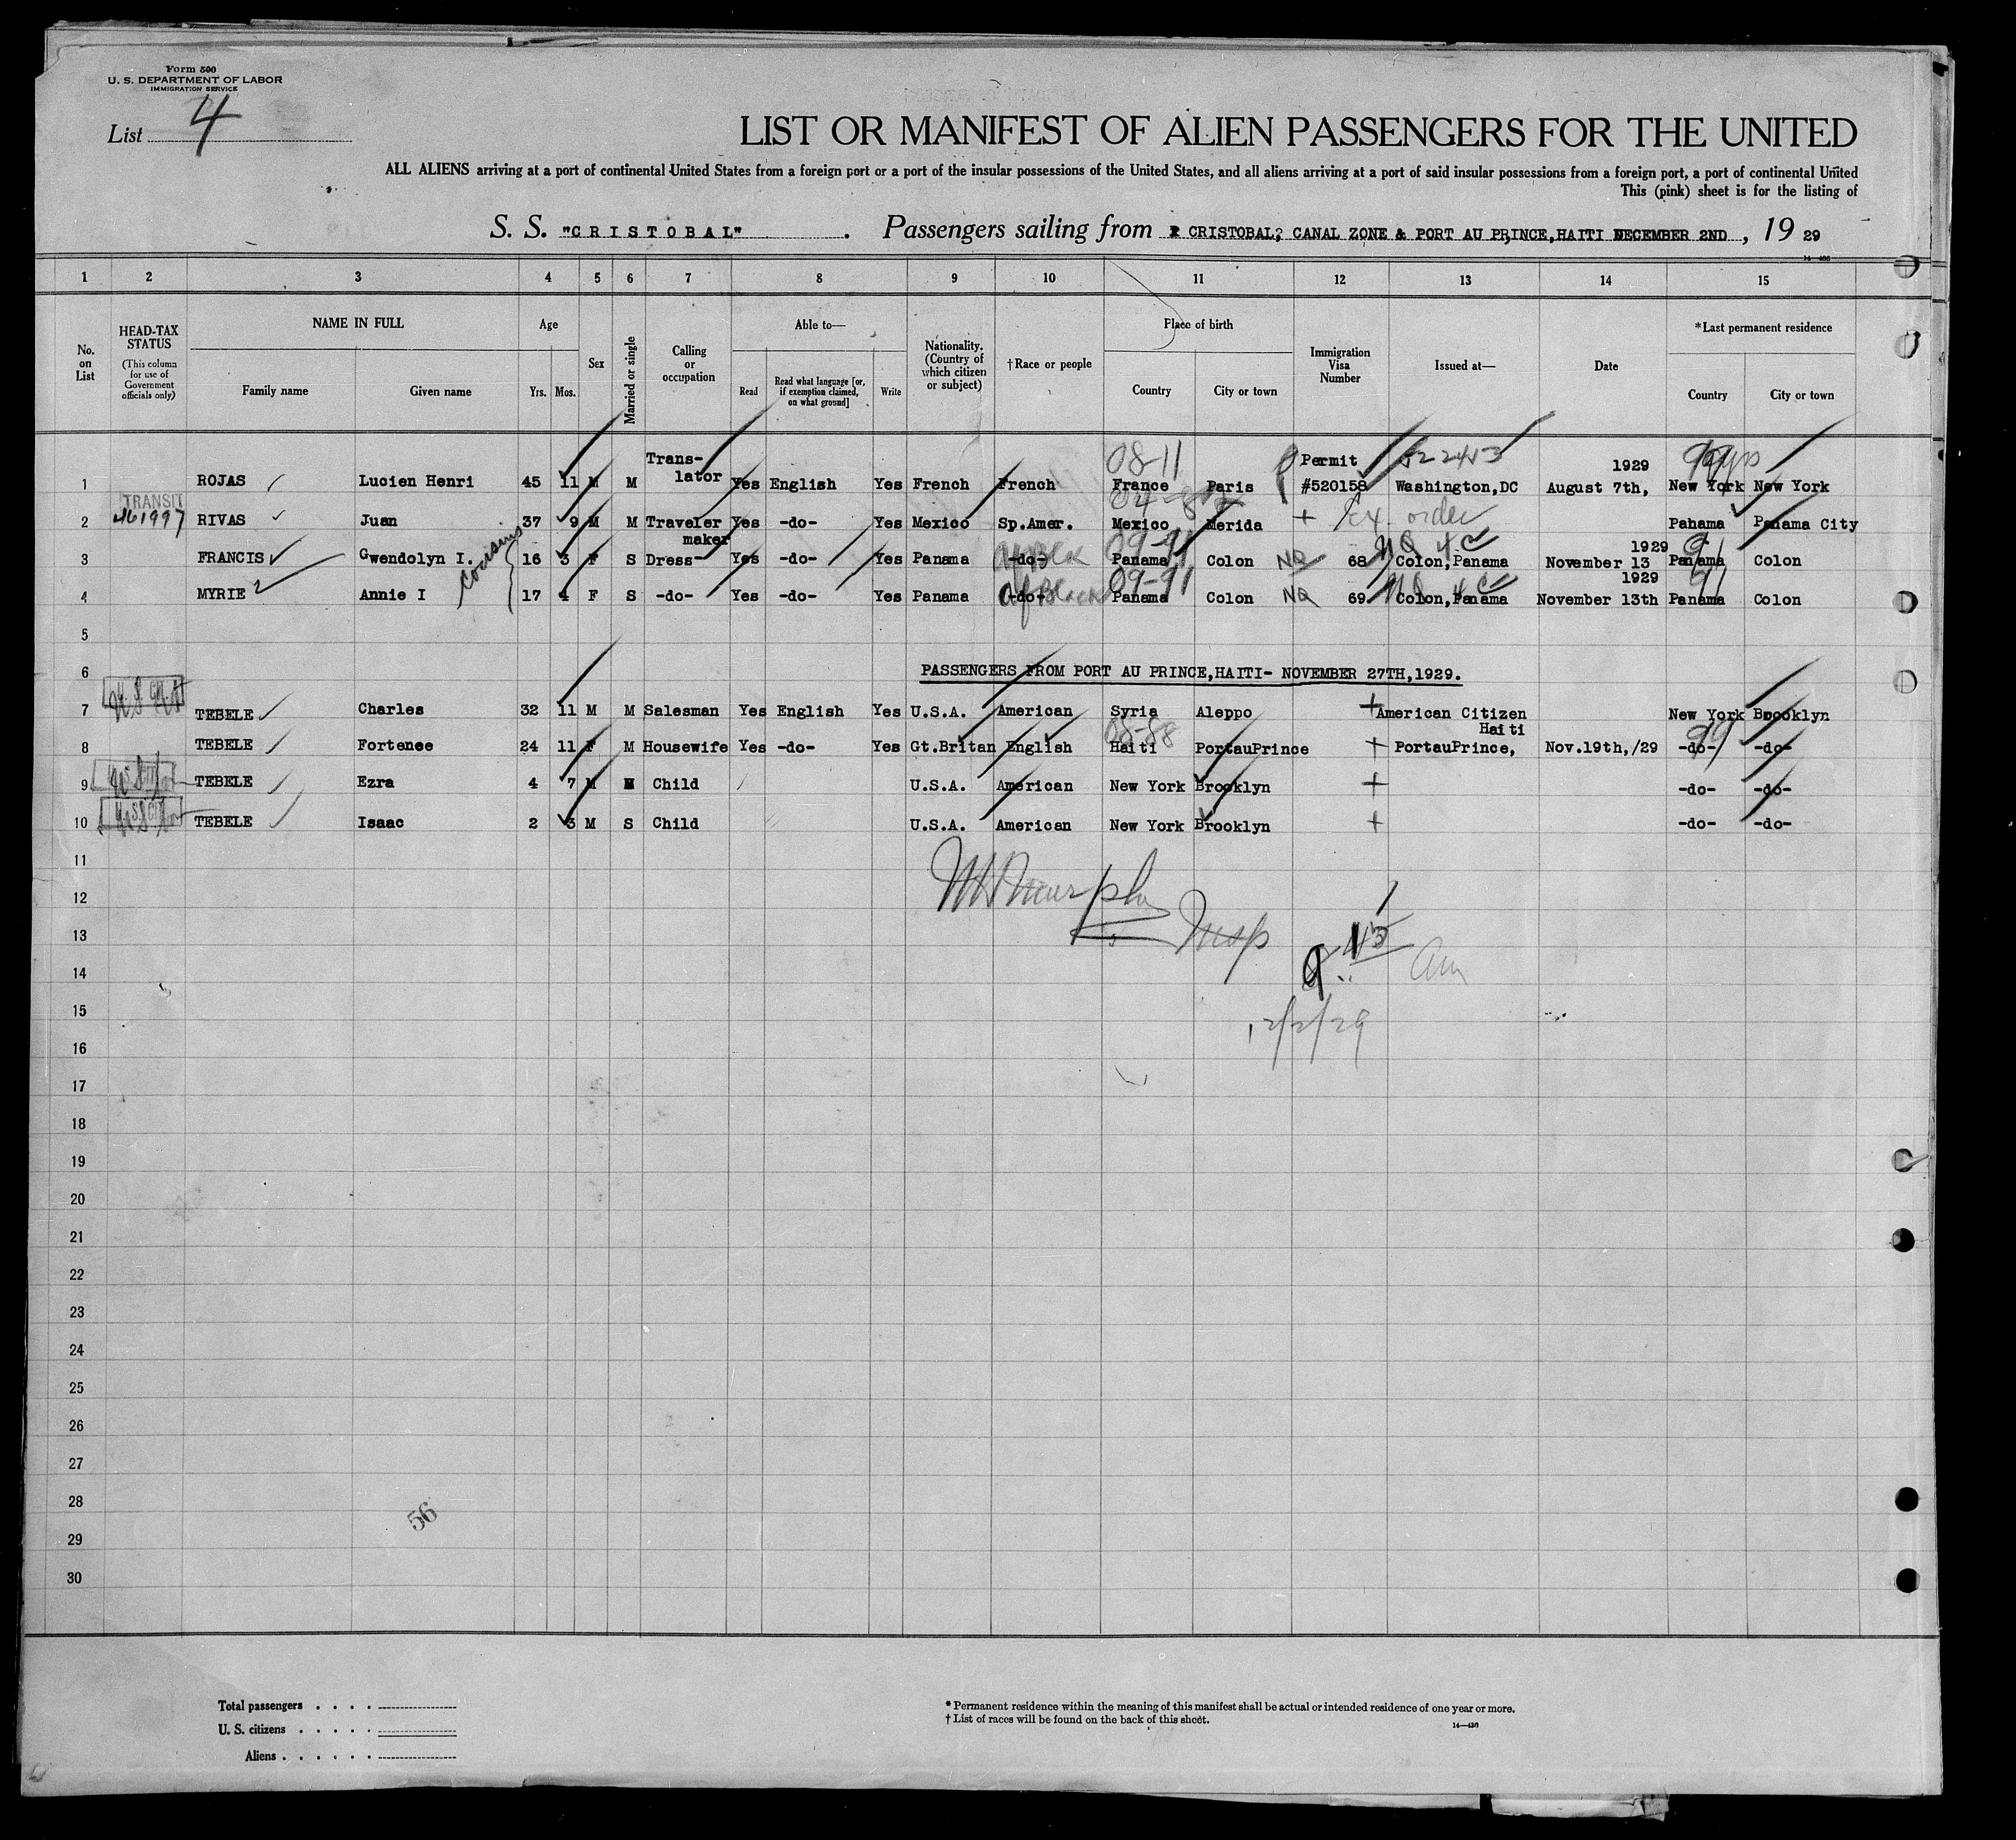 Form 500
U. S. DEPARTMENT OF LABOR
IMMIGRATION SERVICE
List 4
LIST OR MANIFEST OF ALIEN PASSENGERS FOR THE UNITED
ALL ALIENS arriving at a port of continental United States from a foreign port or a port of the insular possessions of the United States, and all aliens arriving at a port of said insular possessions from a foreign port, a port of continental United
This (pink) sheet is for the listing of
S. S. "CRISTOBAL". Passengers sailing from CRISTOBAL, CANAL ZONE & PORT AU PRINCE,HAITI DECEMBER 2ND, 19 29
1 2 3 4 5 6 7 8 9 10 11 12 13 14 15
No. on List
HEAD-TAX STATUS (This column for use of Government officials only)
NAME IN FULL
Family name Given name
Age
Yrs. Mos.
Sex
Married or single
Calling or occupation
Able to—
Read Read what language [or, if exemption claimed, on what ground] Write
Nationality. (Country of which citizen or subject)
†Race or people
Place of birth
Country City or town
Immigration Visa Number
Issued at—
Date
*Last permanent residence
Country City or town
08-11
1 ROJAS Lucien Henri 45 11 M M Trans-lator Yes English Yes French French France Paris Permit #520158 Washington,DC August 7th, 1929 New York New York
TRANSIT
461997
2 RIVAS Juan 37 9 M M Traveler Yes -do- Yes Mexico Sp.Amer. Mexico Merida + Ex. order Panama Panama City
cousins
09-91
3 FRANCIS Gwendolyn I. 16 3 F S Dress-maker Yes -do- Yes Panama -do- Af Blk Panama Colon NQ 68 NQ 4c Colon,Panama November 13 1929 91 Panama Colon
09-91
4 MYRIE Annie I 17 4 F S -do- Yes -do- Yes Panama -do- Af Black Panama Colon NQ 69 NQ 4c Colon,Panama November 13th 1929 91 Panama Colon
5
6 PASSENGERS FROM PORT AU PRINCE,HAITI- NOVEMBER 27TH,1929.
7 TEBELE Charles 32 11 M M Salesman Yes English Yes U.S.A. American Syria Aleppo + American Citizen New York Brooklyn
08-88
8 TEBELE Fortenee 24 11 F M Housewife Yes -do- Yes Gt.Britan English Haiti PortauPrince + PortauPrince, Haiti Nov.19th,/29 99 -do- -do-
9 TEBELE Ezra 4 7 M Child U.S.A. American New York Brooklyn + -do- -do-
10 TEBELE Isaac 2 3 M S Child U.S.A. American New York Brooklyn + -do- -do-
11
12
Murphy
13
Insp
14
15
12/2/29
16
17
18
19
20
21
22
23
24
25
26
27
28
56
29
30
Total passengers . . . .
U. S. citizens . . . . .
Aliens . . . . . .
* Permanent residence within the meaning of this manifest shall be actual or intended residence of one year or more.
† List of races will be found on the back of this sheet.